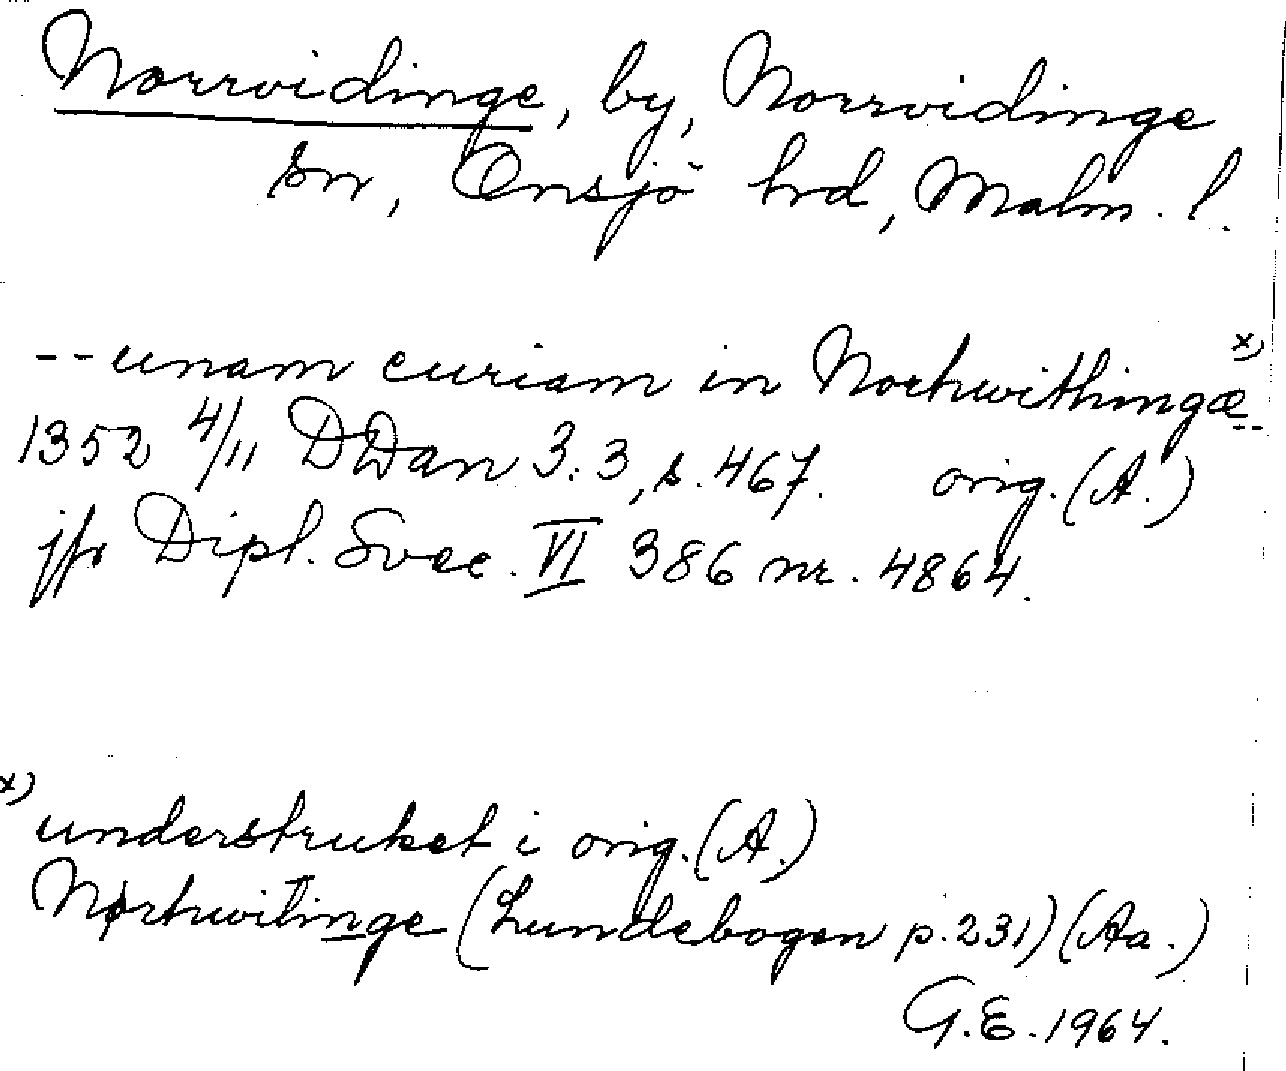 Norrvidinge, by, Norrvidinge
sn, Onsjö hrd, Malm. l.
-- unam curiam in Norhwithingæ x) --
1352 4/11 DDan 3:3, s. 467. orig. (A.)
jfr Dipl. Svec. VI 386 nr. 4864.
x) understruket i orig. (A.)
Nørhwitinge (Lundebogen p. 231) (Aa.)
G.E. 1964.